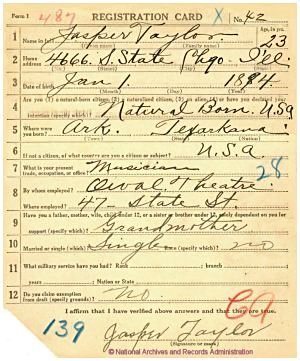 Form 1 487 REGISTRATION CARD X1 No. 42
1 Name in full Jasper Taylor Age, in yrs. 23
(Given name) (Family name)
2 Home address 4666. S. State Chgo Ill.
(No.) (Street) (City) (State)
3 Date of birth Jan 1. 1894
(Month) (Day) (Year)
4 Are you (1) a natural-born citizen, (2) a naturalized citizen, (3) an alien, (4) or have you declared your
intention (specify which)? Natural Born. U.S.A
5 Where were you born? Ark. Texarkana
(Town) (State) (Nation)
6 If not a citizen, of what country are you a citizen or subject? U.S.A
7 What is your present trade, occupation, or office? Musician 28
8 By whom employed? Owal Theatre.
Where employed? 47- State St.
9 Have you a father, mother, wife, child under 12, or a sister or brother under 12, solely dependent on you for
support (specify which)? Grandmother
10 Married or single (which)? Single Race (specify which)? no
11 What military service have you had? Rank ; branch
years ; Nation or State
12 Do you claim exemption from draft (specify grounds)? No
I affirm that I have verified above answers and that they are true.
139 69
Jasper Taylor
(Signature or mark)
© National Archives and Records Administration